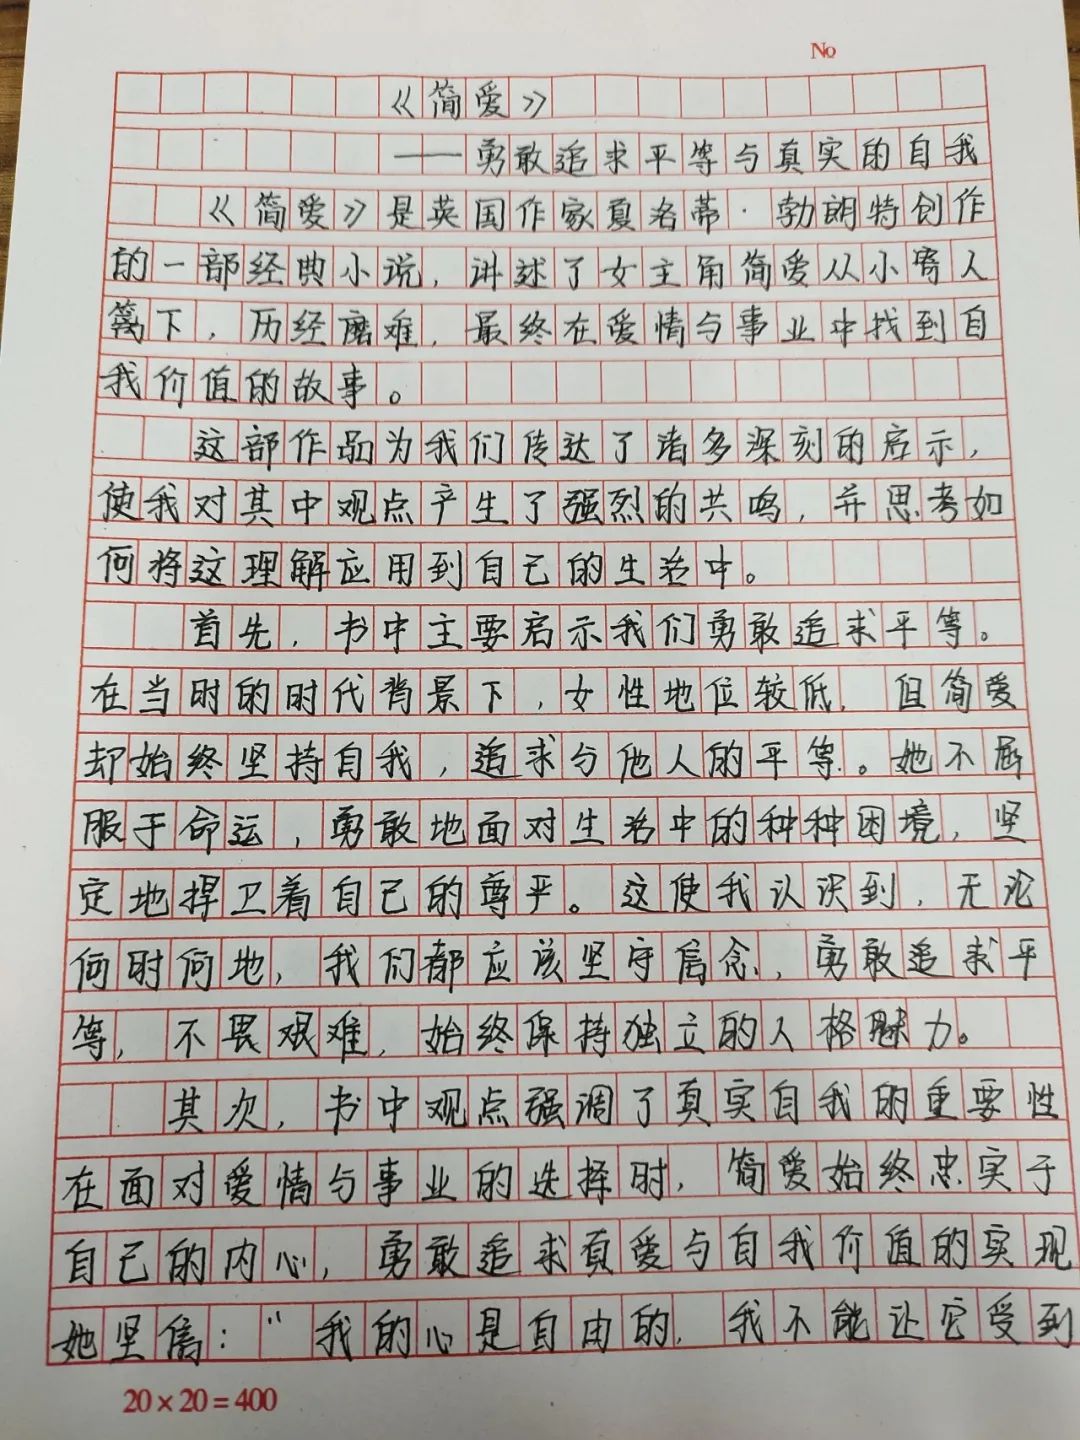 No
《简爱》
——勇敢追求平等与真实的自我
《简爱》是英国作家夏洛蒂·勃朗特创作
的一部经典小说，讲述了女主角简爱从小寄人
篱下，历经磨难，最终在爱情与事业中找到自
我价值的故事。
这部作品为我们传达了诸多深刻的启示，
使我对其中观点产生了强烈的共鸣，并思考如
何将这理解应用到自己的生活中。
首先，书中主要启示我们勇敢追求平等。
在当时的时代背景下，女性地位较低，但简爱
却始终坚持自我，追求与他人的平等。她不屈
服于命运，勇敢地面对生活中的种种困境，坚
定地捍卫着自己的尊严。这使我认识到，无论
何时何地，我们都应该坚守信念，勇敢追求平
等，不畏艰难，始终保持独立的人格魅力。
其次，书中观点强调了真实自我的重要性
在面对爱情与事业的选择时，简爱始终忠实于
自己的内心，勇敢追求真爱与自我价值的实现
她坚信：“我的心是自由的，我不能让它受到
20×20=400